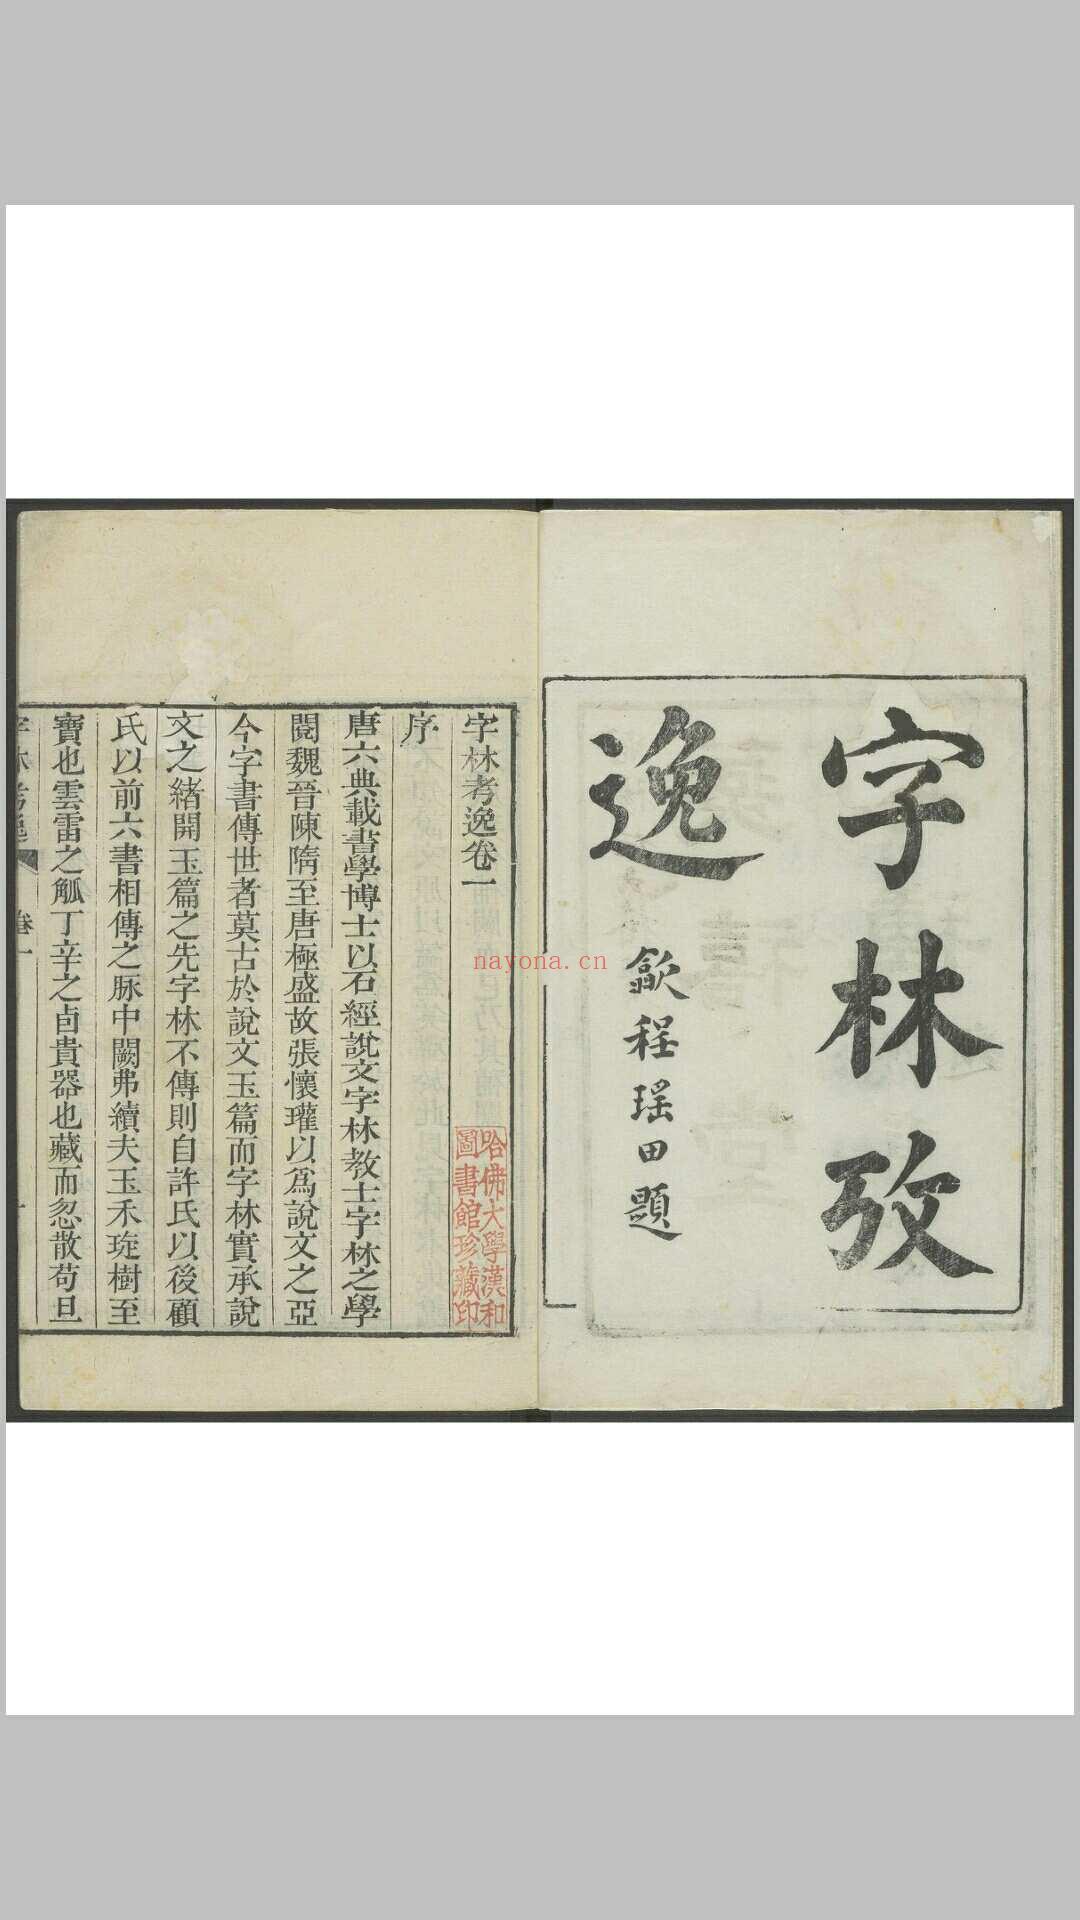 字林攷
逸
歙程瑤田題
字林考逸卷一
序
唐六典載書學博士以石經說文字林教士字林之學
閱魏晉陳隋至唐極盛故張懷瓘以爲說文之亞
今字書傳世者莫古於說文玉篇而字林實承說
文之緒開玉篇之先字林不傳則自許氏以後顧
氏以前六書相傳之脉中闕弗續夫玉禾琁樹至
寶也雲雷之觚丁辛之卣貴器也藏而忽散苟旦
字林考逸
卷一
一
哈佛大學漢和
圖書館珍藏印
nayona.cn